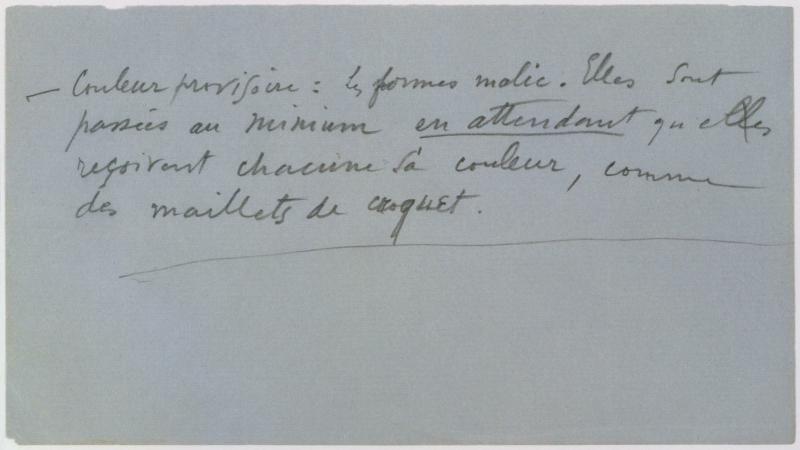 — Couleur provisoire : les formes malic. Elles sont
passées au minium en attendant qu'elles
reçoivent chacune sa couleur, comme
des maillets de croquet.